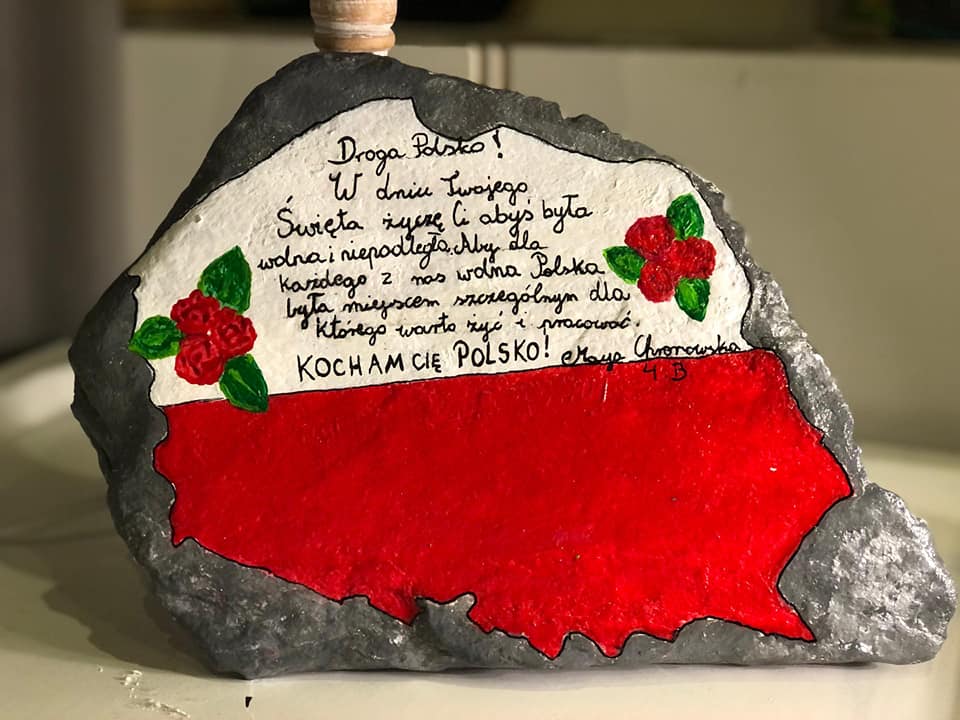 Droga Polsko!
W dniu Twojego
Święta życzę Ci abyś była
wolna i niepodległa. Aby dla
każdego z nas wolna Polska
była miejscem szczególnym dla
którego warto żyć i pracować.
KOCHAM CIĘ POLSKO! Maya Chronowska
4 B